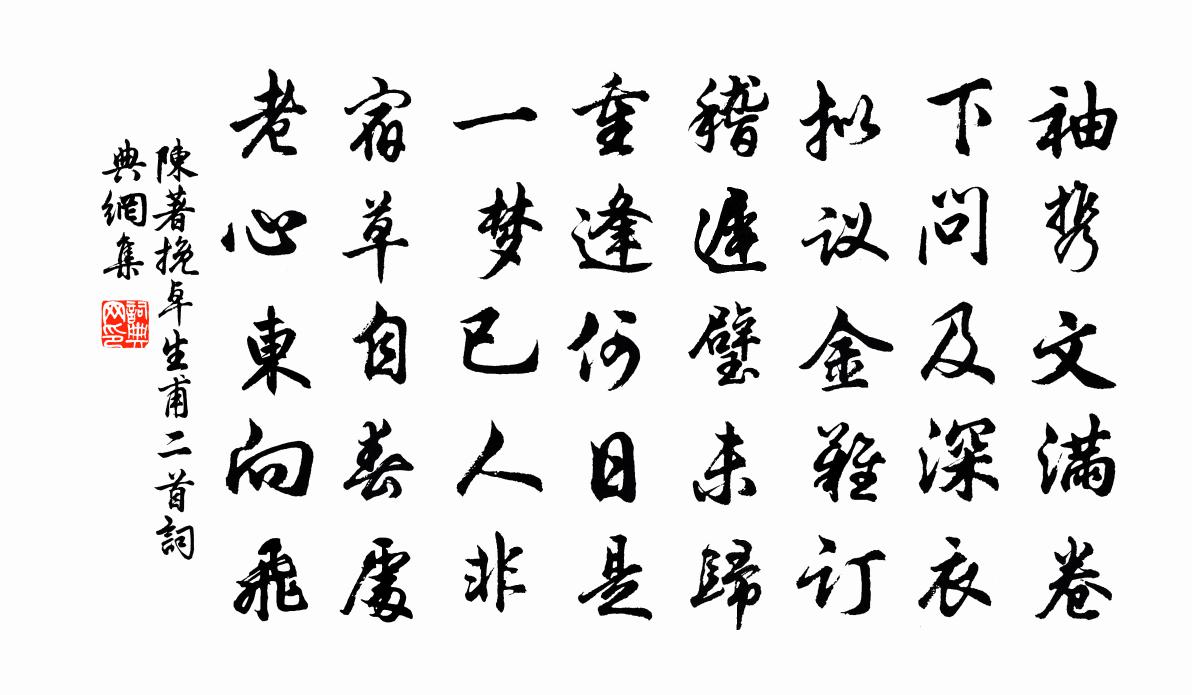 袖携文满卷
下问及深衣
拟议金难订
稽遲璧未歸
重逢何日是
一梦已人非
宿草自春處
老心東向飛
陳著挽卓生甫二首詞
典網集
詞典网印